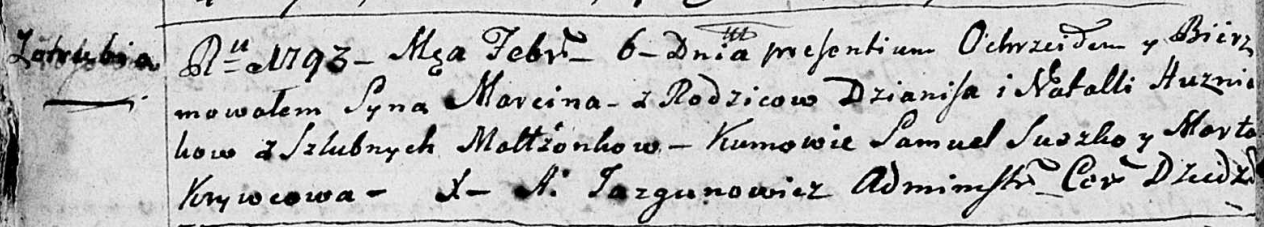 Zatrubia
Ru 1793 – Mca Febr – 6 – Dnia presentium Ochrzciłem y Bierz
mowałem Syna Marcina – z Rodzicow Dzianisa i Natalli Huznia
kow z Szlubnych Małtżonkow – Kumowie Samuel Suszko y Marta
Krywcowa – X – A: Jazgunowicz Administr Cer Dziedz